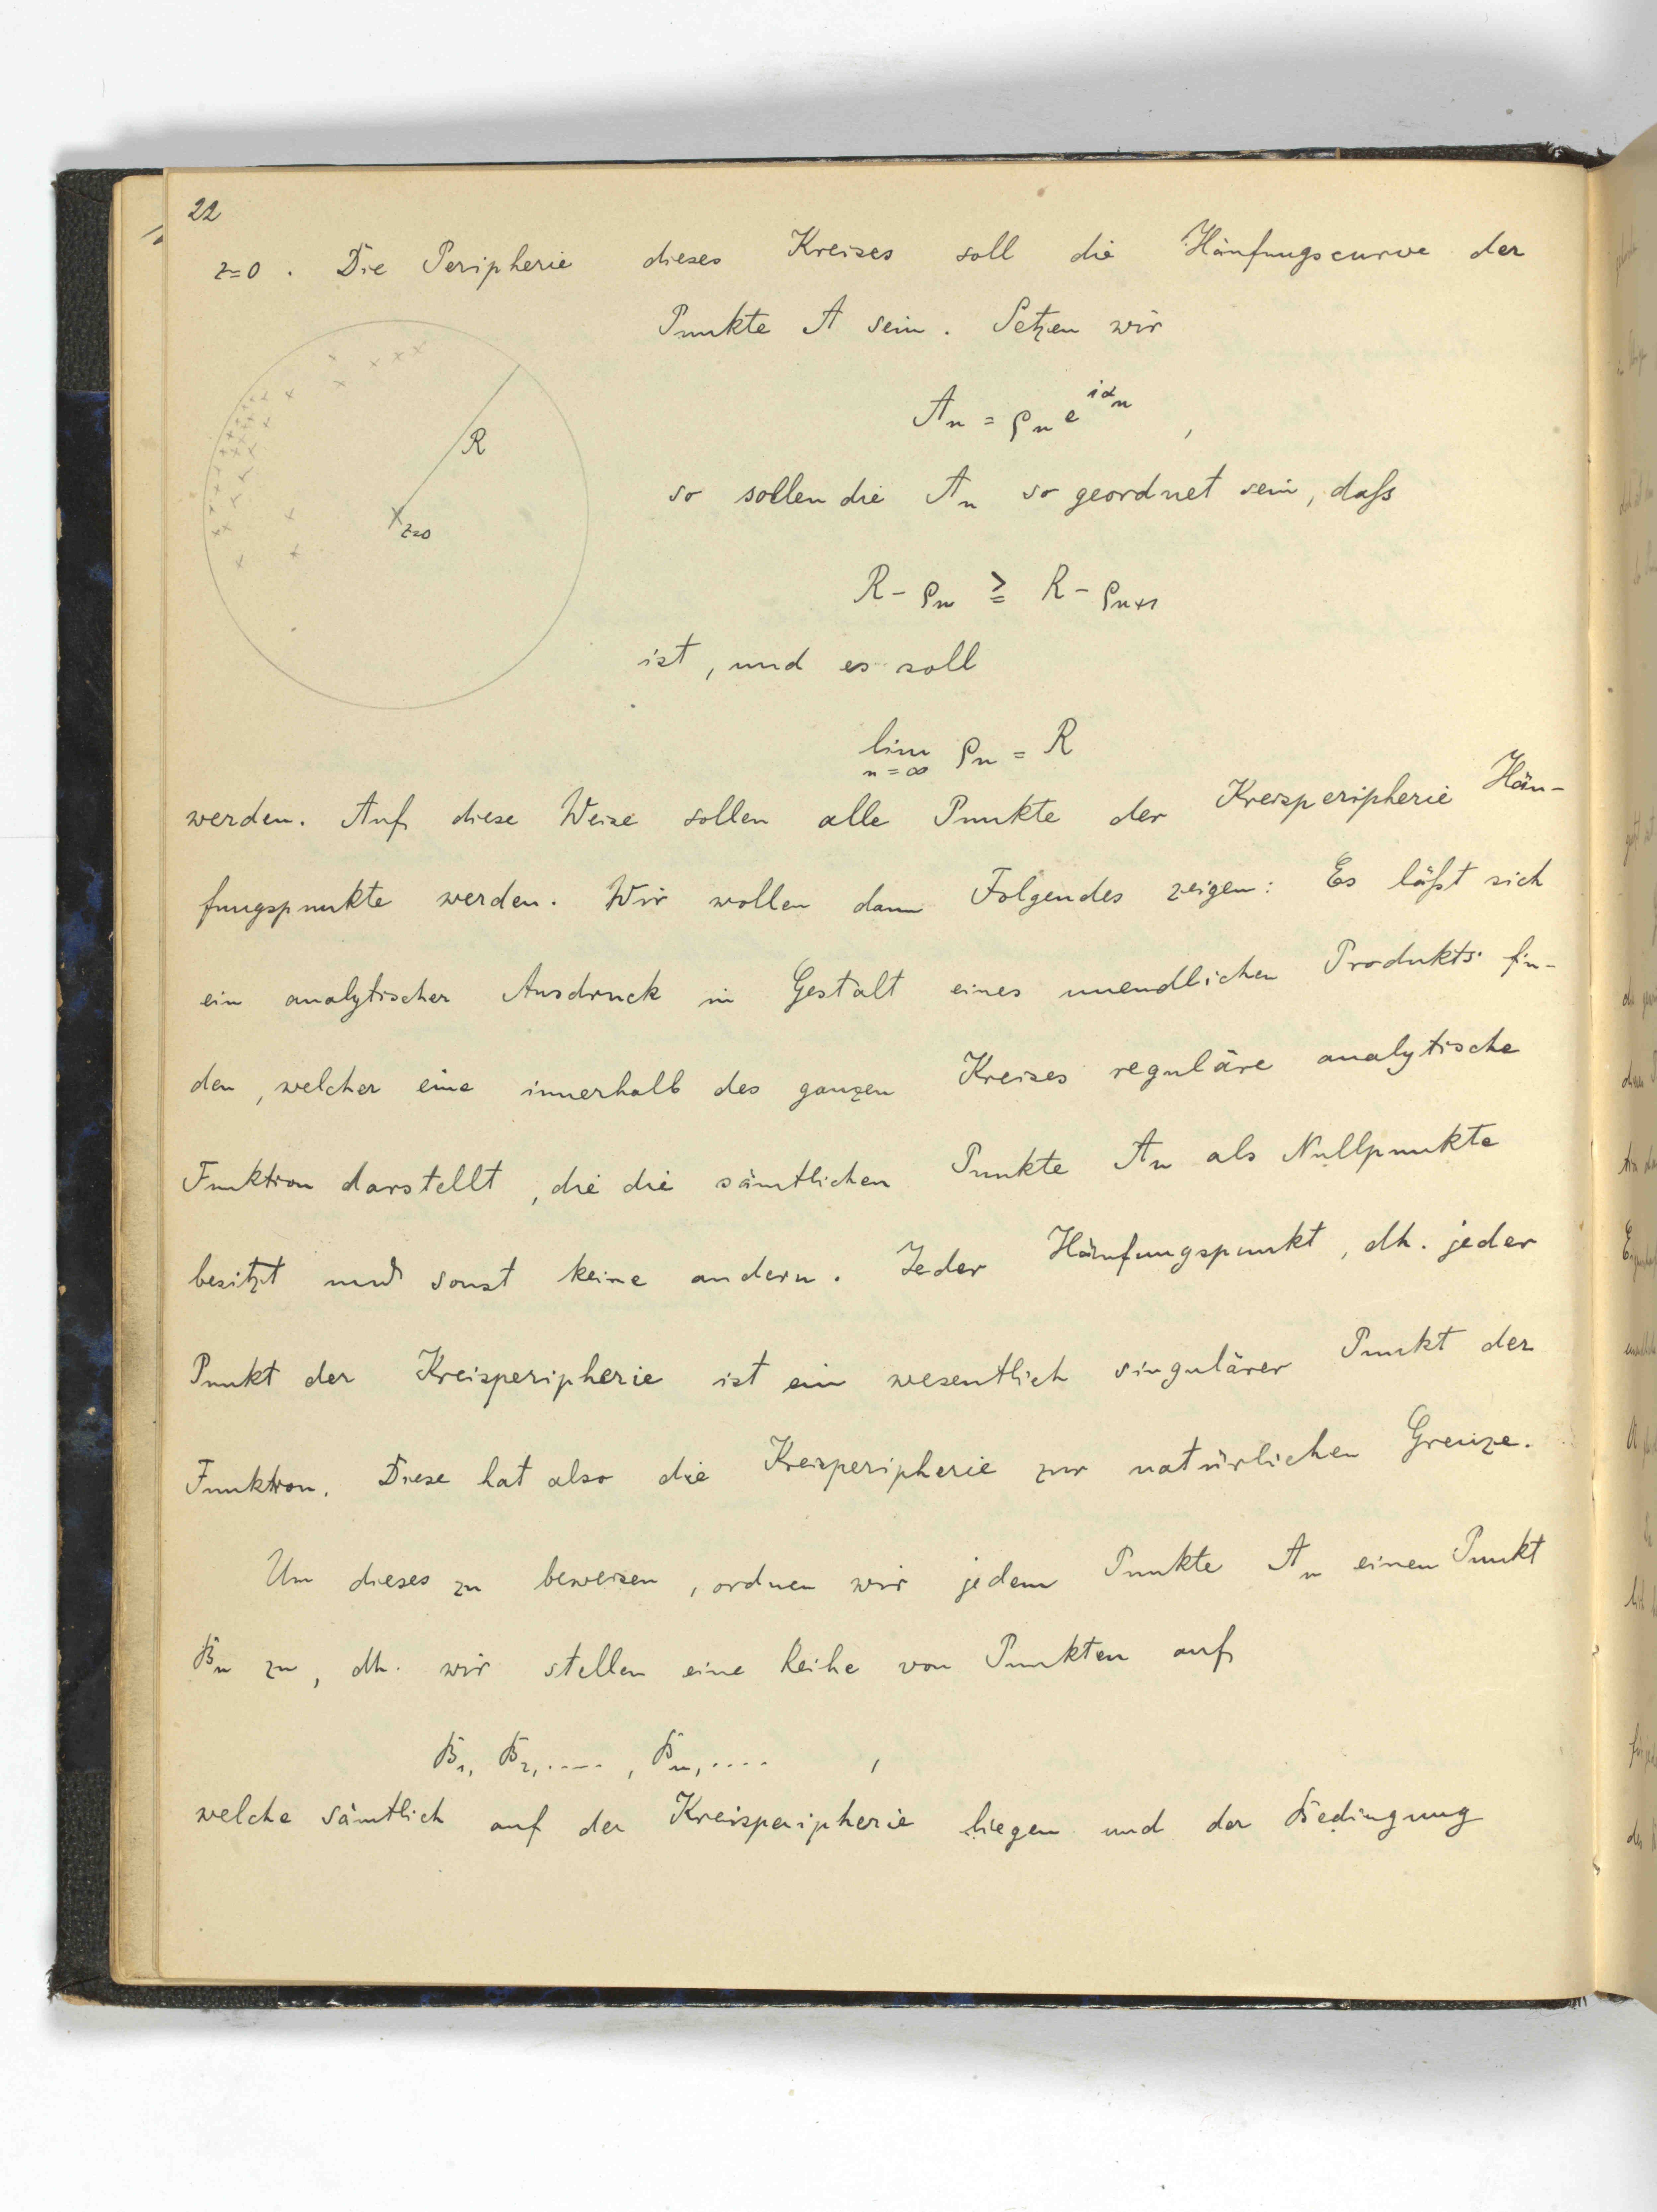 22
z=0. Die Peripherie dieses Kreises soll die Häufungscurve der
Punkte A sein. Setzen wir
Aₙ = ρₙ e^{iαₙ},
R
so sollen die Aₙ so geordnet sein, daſs
z=0
R - ρₙ ≧ R - ρₙ₊₁
ist, und es soll
lim ρₙ = R
n=∞
werden. Auf diese Weise sollen alle Punkte der Kreisperipherie Häu-
fungspunkte werden. Wir wollen dann Folgendes zeigen: Es läſst sich
ein analytischer Ausdruck in Gestalt eines unendlichen Produkts fin-
den, welcher eine innerhalb des ganzen Kreises reguläre analytische
Funktion darstellt, die die sämtlichen Punkte Aₙ als Nullpunkte
besitzt und sonst keine andern. Jeder Häufungspunkt, dh. jeder
Punkt der Kreisperipherie ist ein wesentlich singulärer Punkt der
Funktion. Diese hat also die Kreisperipherie zur natürlichen Grenze.
Um dieses zu beweisen, ordnen wir jedem Punkte Aₙ einen Punkt
Bₙ zu, dh. wir stellen eine Reihe von Punkten auf
B₁, B₂, ...., Bₙ, .... ,
welche sämtlich auf der Kreisperipherie liegen und der Bedingung